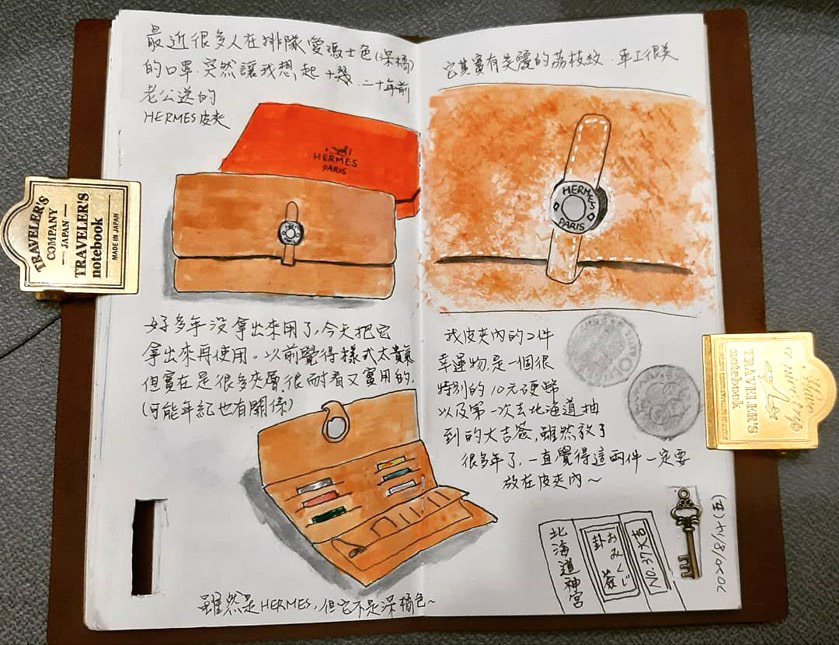 最近很多人在排隊愛瑪士色(深橘)
的口罩.突然讓我想起十幾.二十年前
老公送的
HERMES皮夾
HERMES
PARIS
好多年沒拿出來用了,今天把它
拿出來再使用。以前覺得樣式太貴氣
但實在是很多夾層很耐看又實用的.
(可能年紀也有關係)
雖然是HERMES,但它不是深橘色~
它其實有美麗的荔枝紋.車工很美
HERMES
PARIS
我皮夾內的2件
幸運物.是一個很
特別的10元硬幣
以及第一次去北海道抽
到的大吉簽.雖然放了
很多年了,一直覺得這兩件一定要
放在皮夾內~
北海道神宮
おみくじ
卦簽
NO.37大吉
2021/8/21(五)
TRAVELER'S
COMPANY
JAPAN
TRAVELER'S
notebook
MADE IN JAPAN
TRAVELER'S
notebook